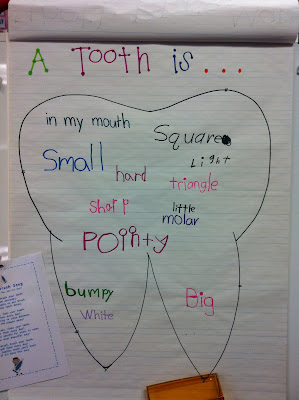 A Tooth is ...
in my mouth
Square
Light
Small
hard
triangle
sharp
little
molar
Pointy
bumpy
Big
White